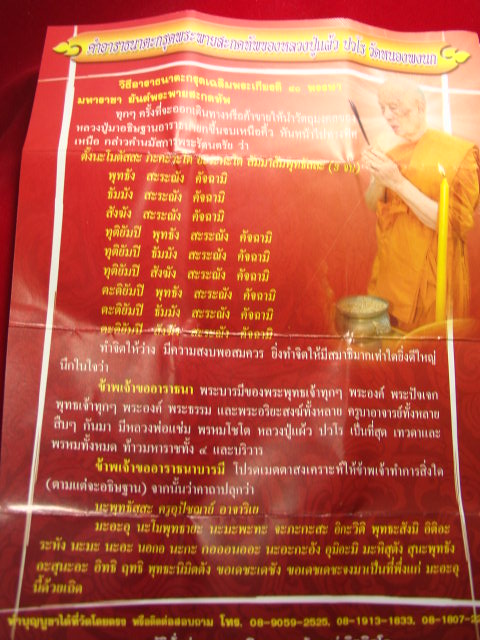 คำอาราธนาตะกรุดพระพายสะกดทัพของหลวงปู่แผ้ว ปวโร วัดหนองพงนก
วิธีอาราธนาตะกรุดเฉลิมพระเกียรติ ๘๐ พรรษา
มหาราชา ยันต์พระพายสะกดทัพ
ทุกๆ ครั้งที่จะออกเดินทางหรือค้าขายให้นำวัตถุมงคลของ
หลวงปู่มาอธิษฐานอาราธนายกขึ้นจบเหนือคิ้ว หันหน้าไปทางทิศ
เหนือ กล่าวคำนมัสการพระรัตนตรัย ว่า
ตั้งนะโมตัสสะ ภะคะวะโต อะระหะโต สัมมาสัมพุทธัสสะ (3 จบ)
พุทธัง สะระณัง คัจฉามิ
ธัมมัง สะระณัง คัจฉามิ
สังฆัง สะระณัง คัจฉามิ
ทุติยัมปิ พุทธัง สะระณัง คัจฉามิ
ทุติยัมปิ ธัมมัง สะระณัง คัจฉามิ
ทุติยัมปิ สังฆัง สะระณัง คัจฉามิ
ตะติยัมปิ พุทธัง สะระณัง คัจฉามิ
ตะติยัมปิ ธัมมัง สะระณัง คัจฉามิ
ตะติยัมปิ สังฆัง สะระณัง คัจฉามิ
ทำจิตให้ว่าง มีความสงบพอสมควร ยิ่งทำจิตให้มีสมาธิมากเท่าใดยิ่งดีใหญ่
นึกในใจว่า
ข้าพเจ้าขออาราธนา พระบารมีของพระพุทธเจ้าทุกๆ พระองค์ พระปัจเจก
พุทธเจ้าทุกๆ พระองค์ พระธรรม และพระอริยะสงฆ์ทั้งหลาย ครูบาอาจารย์ทั้งหลาย
สืบๆ กันมา มีหลวงพ่อแช่ม พรหมโชโต หลวงปู่แผ้ว ปวโร เป็นที่สุด เทวดาและ
พรหมทั้งหมด ท้าวมหาราชทั้ง ๔ และบริวาร
ข้าพเจ้าขออาราธนาบารมี โปรดเมตตาสงเคราะห์ให้ข้าพเจ้าทำการสิ่งใด
(ตามแต่จะอธิษฐาน) จากนั้นว่าคาถาปลุกว่า
นะพุทธัสสะ ครุอุปัชฌาย์ อาจาริเย
มะอะอุ นะโมพุทธายะ นะมะพะทะ จะภะกะสะ อิกะวิติ พุทธะสังมิ อิติอะ
ระหัง นะมะ นะอะ นอกอ นะกะ กอออนออะ นะอะกะอัง อุมิอะมิ มะหิสุตัง สุนะพุทธัง
อะสุนะอะ อิทธิ ฤทธิ พุทธะนิมิตตัง ขอเดชะเดชัง ขอเดชเดชะจงมาเป็นที่พึ่งแก่ มะอะอุ
นี้ด้วยเถิด
ทำบุญบูชาได้ที่วัดโดยตรง หรือติดต่อสอบถาม โทร. 08-9059-2525, 08-1913-1833,